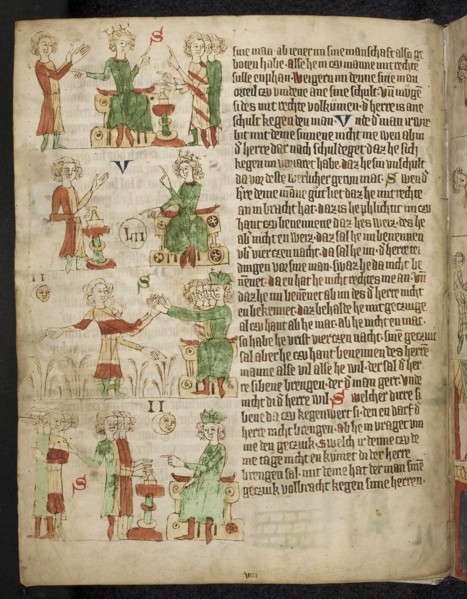 sine man. ab iener im sine manschaft also ge
boten habe. alse he im czu manne mit rechte
sulle enphan. Weigern im denne sine man
orteil czu vindene ane sine schult.
si des mit rechte volkumen. d herre is ane
schult kegen den man. Vnde d man
hit mit deme sinnene nicht me wen ab in
d herre dar nach schuldeget. daz he sich
kegen im vorniet habe. daz he sin vnschult
da vor deste werlicher getun mac. S wen d
h're deme manne gut liet daz he mit rechte
an in bracht hat. daz is he phlichtic im czu
hant czu benennene daz hes weiz. des he
ab nicht en weiz. daz sal he im benennen
vbir vierczen nacht. da sal he im d herre tei
dingen vor sine man. swaz he da nicht be
nennet. da en hat he nicht rechtes me an. vn
daz he im benennet ab im des d herre nicht
en bekennet. daz behalde he mit geczuge
al czu hant ab he mac. ab he nicht en mac.
so habe he vrist vierczen nacht. sine geczuge
sal aber he czu hant benennen des herre
manne alse vil alse he wil. der sal d her
re sibene brengen. der d man gert. vnde
nicht di d herre wil. S welcher dirre si
bene da czu kegenwert si. den en darf d
herre nicht brengen. ab he in vraget vm
me den geczuk. Swelch ir denne czu de
me tage nicht en kumet di der herre
brengen sal. mit deme hat der man sine
geczuk volbracht kegen sime herren.
S
V
LII
II
S
II
S